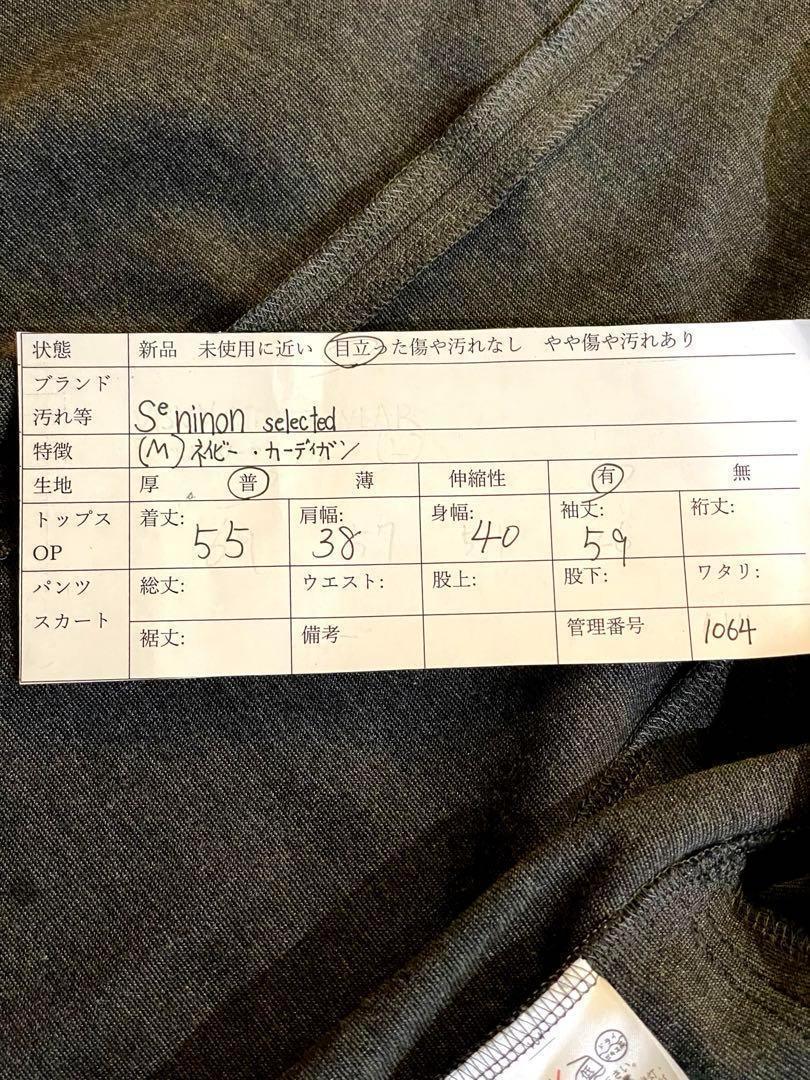 状態 新品 未使用に近い 目立った傷や汚れなし やや傷や汚れあり
ブランド
汚れ等 Se ninon selected
特徴 (M) ネイビー・カーディガン
生地 厚 普 薄 伸縮性 有 無
トップス 着丈: 肩幅: 身幅: 袖丈: 裄丈:
OP 55 38 40 59
パンツ 総丈: ウエスト: 股上: 股下: ワタリ:
スカート 裾丈: 備考 管理番号 1064
ドライ
低